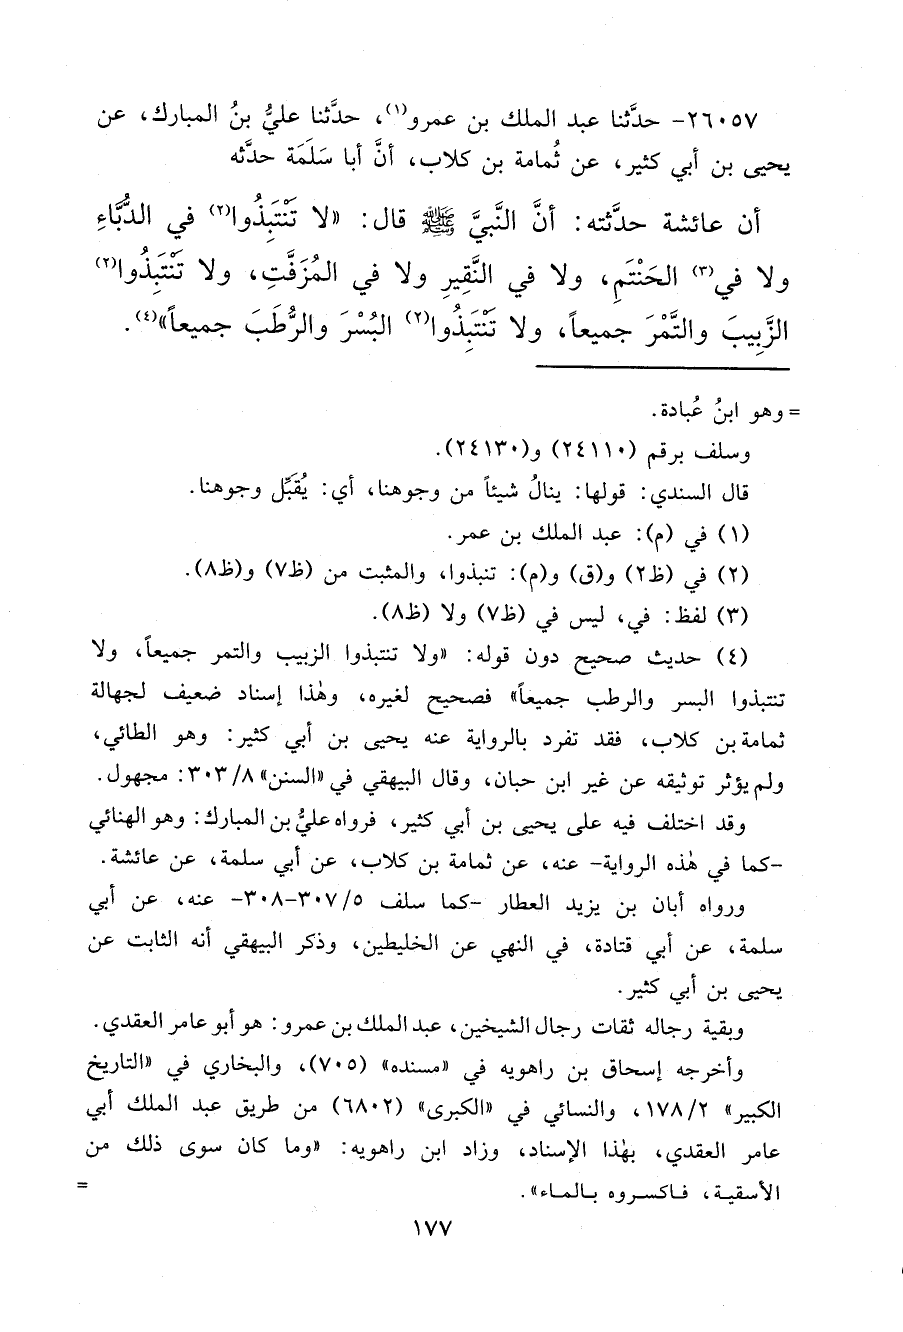 ٢٦٠٥٧- حدَّثنا عبد الملك بن عمرو(١)، حدَّثنا عليُّ بنُ المبارك، عن
يحيى بن أبي كثير، عن ثُمامة بن كلاب، أنَّ أبا سَلَمَة حدَّثه
أن عائشة حدَّثته: أنَّ النَّبيَّ ﷺ قال: «لا تَنْتَبِذُوا(٢) في الدُّبَّاءِ
ولا في(٣) الحَنْتَمِ، ولا في النَّقِيرِ ولا في المُزَفَّتِ، ولا تَنْتَبِذُوا(٢)
الزَّبِيبَ والتَّمْرَ جميعاً، ولا تَنْتَبِذُوا(٢) البُسْرَ والرُّطَبَ جميعاً»(٤).
= وهو ابنُ عُبادة.
وسلف برقم (٢٤١١٠) و(٢٤١٣٠).
قال السندي: قولها: ينالُ شيئاً من وجوهنا، أي: يُقَبِّل وجوهنا.
(١) في (م): عبد الملك بن عمر.
(٢) في (ظ٢) و(ق) و(م): تنبذوا، والمثبت من (ظ٧) و(ظ٨).
(٣) لفظ: في، ليس في (ظ٧) ولا (ظ٨).
(٤) حديث صحيح دون قوله: «ولا تنتبذوا الزبيب والتمر جميعاً، ولا
تنتبذوا البسر والرطب جميعاً» فصحيح لغيره، وهٰذا إسناد ضعيف لجهالة
ثمامة بن كلاب، فقد تفرد بالرواية عنه يحيى بن أبي كثير: وهو الطائي،
ولم يؤثر توثيقه عن غير ابن حبان، وقال البيهقي في «السنن» ٣٠٣/٨: مجهول.
وقد اختلف فيه على يحيى بن أبي كثير، فرواه عليُّ بن المبارك: وهو الهنائي
-كما في هٰذه الرواية- عنه، عن ثمامة بن كلاب، عن أبي سلمة، عن عائشة.
ورواه أبان بن يزيد العطار -كما سلف ٣٠٧/٥-٣٠٨- عنه، عن أبي
سلمة، عن أبي قتادة، في النهي عن الخليطين، وذكر البيهقي أنه الثابت عن
يحيى بن أبي كثير.
وبقية رجاله ثقات رجال الشيخين، عبد الملك بن عمرو: هو أبو عامر العقدي.
وأخرجه إسحاق بن راهويه في «مسنده» (٧٠٥)، والبخاري في «التاريخ
الكبير» ١٧٨/٢، والنسائي في «الكبرى» (٦٨٠٢) من طريق عبد الملك أبي
عامر العقدي، بهٰذا الإسناد، وزاد ابن راهويه: «وما كان سوى ذلك من
الأسقية، فاكسروه بالماء». =
١٧٧